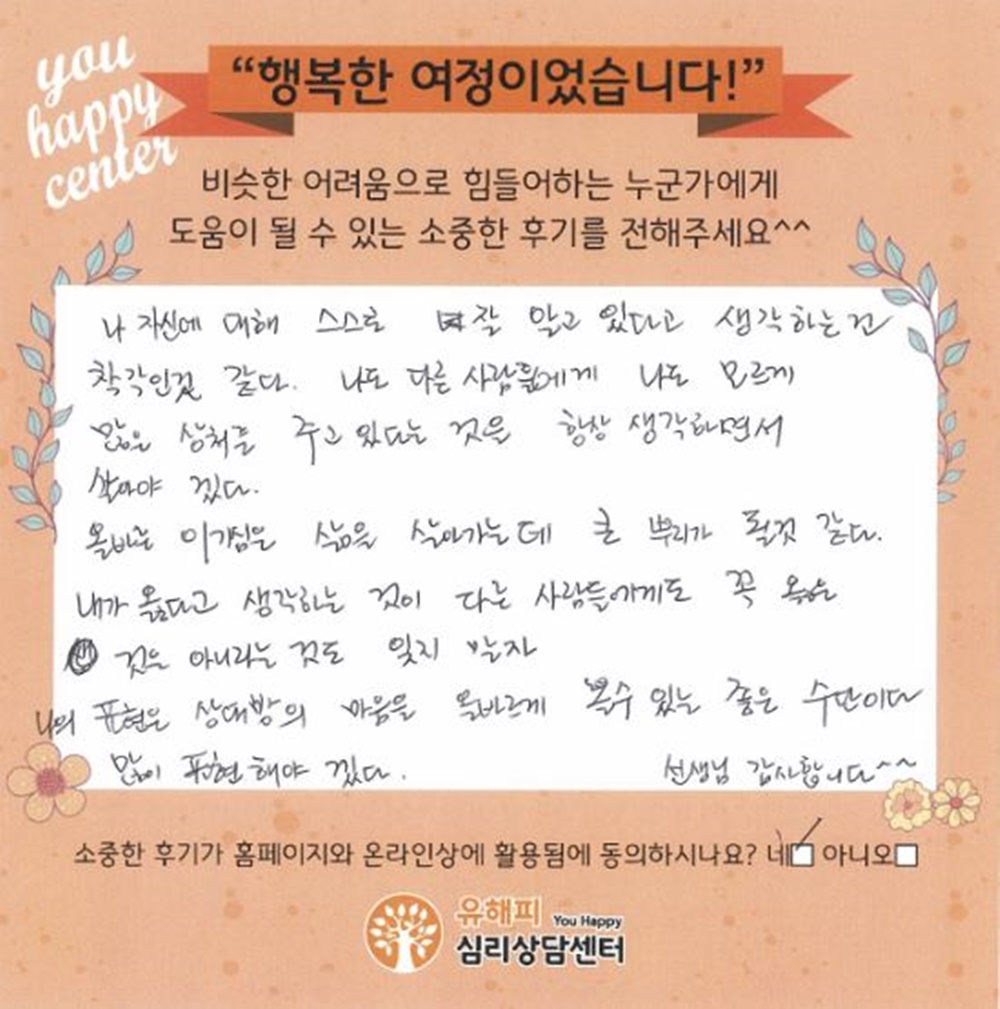 you
happy
center
“행복한 여정이었습니다!”
비슷한 어려움으로 힘들어하는 누군가에게
도움이 될 수 있는 소중한 후기를 전해주세요^^
나 자신에 대해 스스로 잘 알고 있다고 생각하는건
착각인것 같다. 나도 다른 사람들에게 나도 모르게
많은 상처를 주고 있다는 것을 항상 생각하면서
살아야 겠다.
올바른 이기심은 삶을 살아가는데 큰 뿌리가 될것 같다.
내가 옳다고 생각하는 것이 다른 사람들에게도 꼭 옳은
것은 아니라는 것도 잊지 말자
나의 표현은 상대방의 마음을 올바르게 볼수 있는 좋은 수단이다
많이 표현해야 겠다. 선생님 감사합니다^^
소중한 후기가 홈페이지와 온라인상에 활용됨에 동의하시나요? 네 아니오
유해피 You Happy
심리상담센터